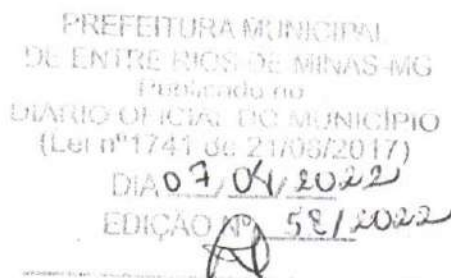 PREFEITURA MUNICIPAL
DE ENTRE RIOS DE MINAS-MG
Publicado no
DIÁRIO OFICIAL DO MUNICÍPIO
(Lei nº1741 de 21/06/2017)
DIA 07/04/2022
EDIÇÃO Nº 58/2022